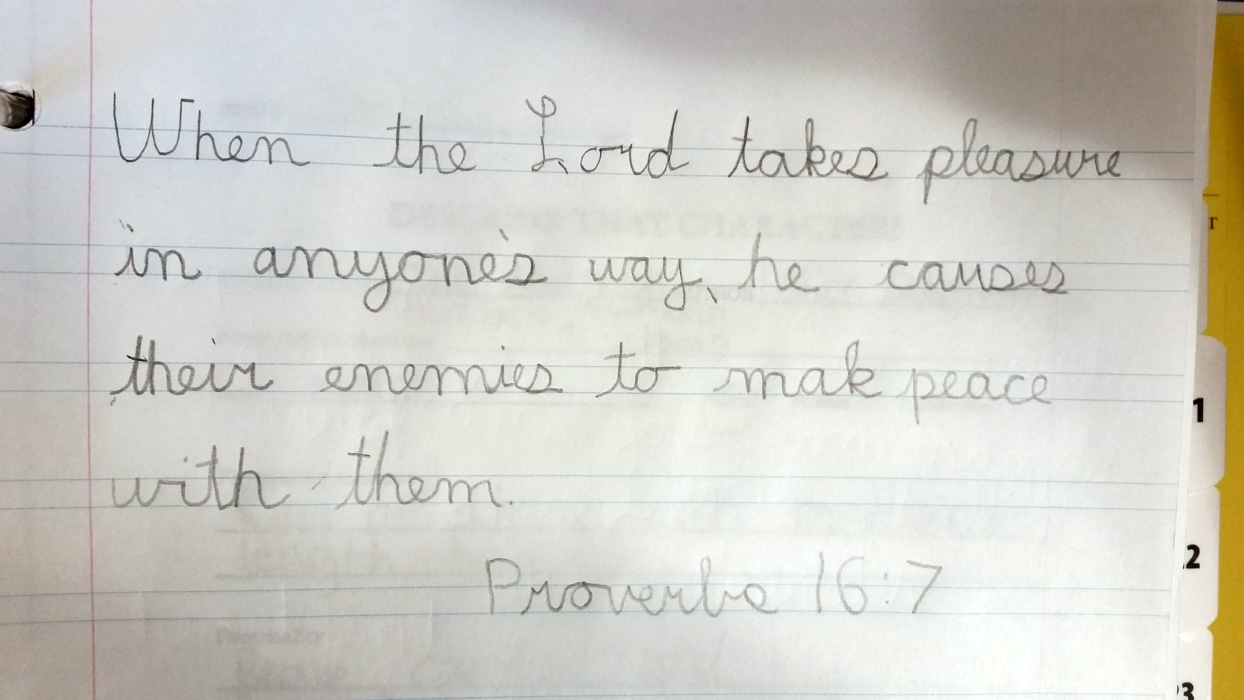 When the Lord takes pleasure
in anyone's way, he causes
their enemies to mak peace
with them.
Proverbs 16:7
T
1
2
3